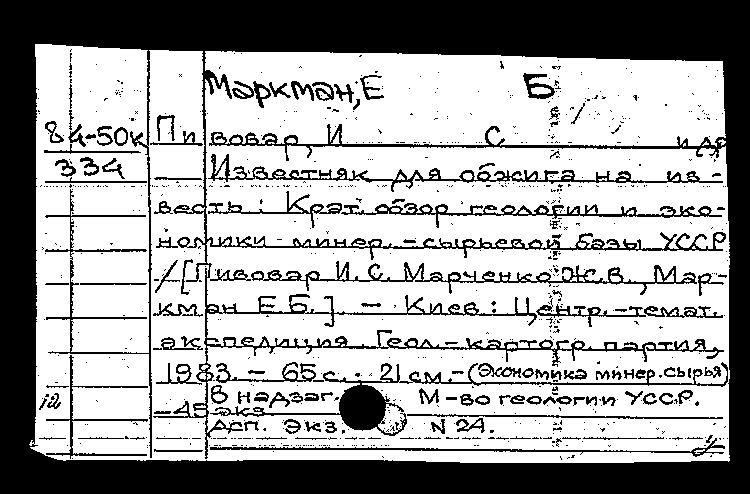 Маркман, Е Б
84-50к Пивовар, И С и др
334 Известняк для обжига на из-
весть : Крат. обзор геологии и эко-
номики минер.-сырьевой базы УССР
/ [Пивовар И. С. Марченко Ж.В., Мар-
кман Е.Б.] – Киев : Центр.-темат.
экспедиция. Геол.-картогр. партия,
1983. – 65 с. · 21 см. – (Экономика минер. сырья)
12 В надзаг. М-во геологии УССР.
–45 экз.
Деп. экз. N 24.